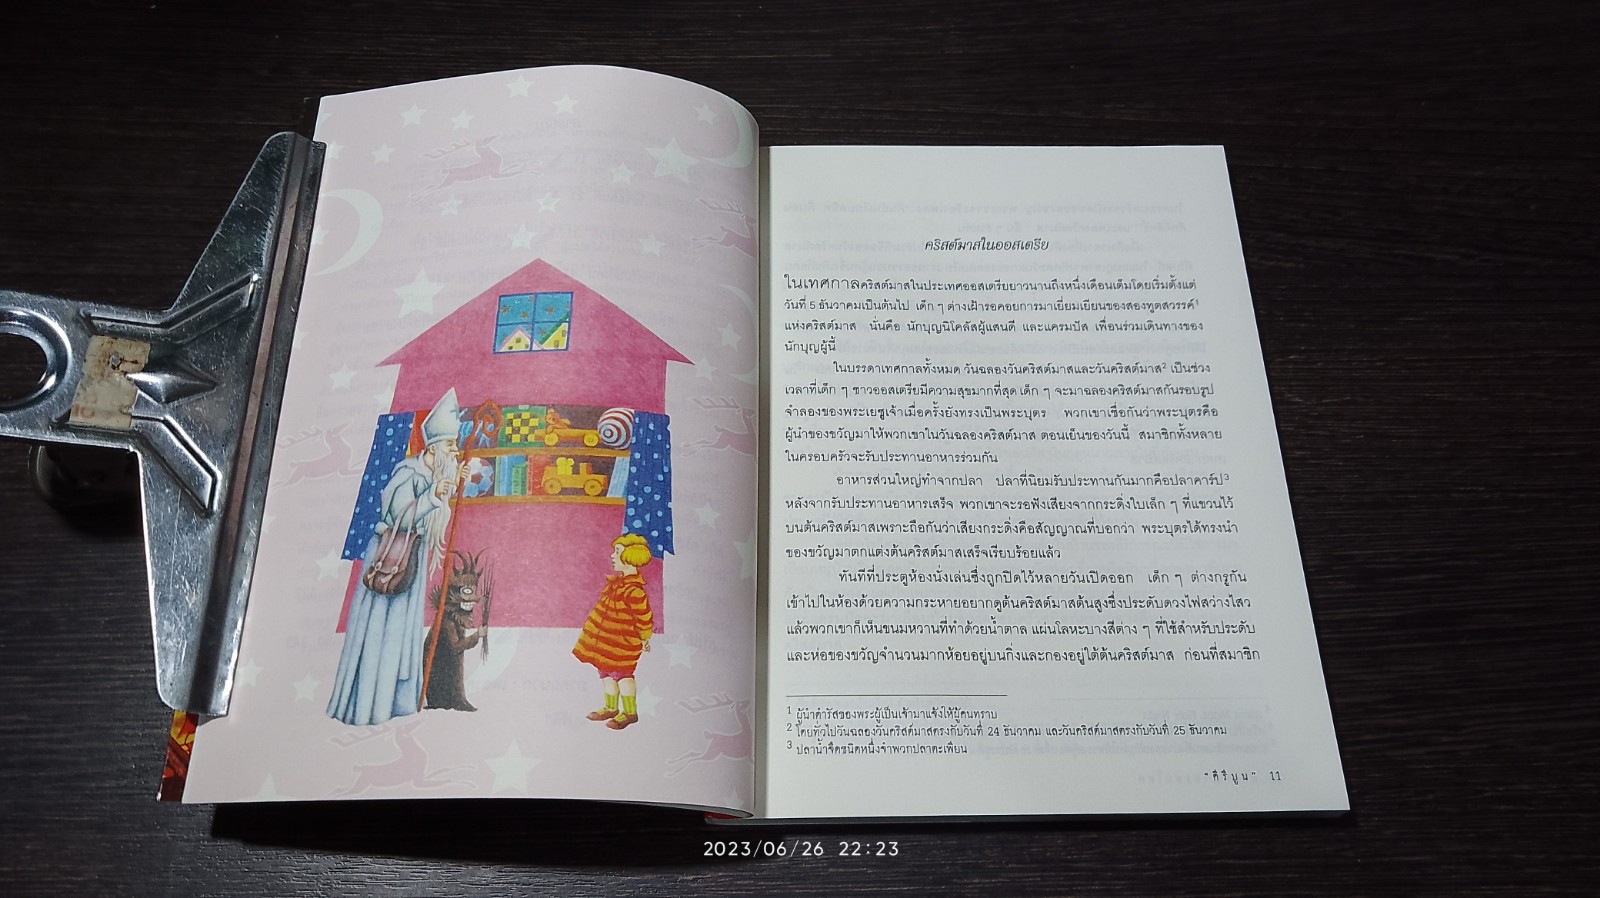 คริสต์มาสในออสเตรีย
ในเทศกาลคริสต์มาสในประเทศออสเตรียยาวนานถึงหนึ่งเดือนเต็มโดยเริ่มตั้งแต่
วันที่ 5 ธันวาคมเป็นต้นไป เด็ก ๆ ต่างเฝ้ารอคอยการมาเยี่ยมเยียนของสองทูตสวรรค์¹
แห่งคริสต์มาส นั่นคือ นักบุญนิโคลัสผู้แสนดี และแครมปัส เพื่อนร่วมเดินทางของ
นักบุญผู้นี้
ในบรรดาเทศกาลทั้งหมด วันฉลองวันคริสต์มาสและวันคริสต์มาส² เป็นช่วง
เวลาที่เด็ก ๆ ชาวออสเตรียมีความสุขมากที่สุด เด็ก ๆ จะมาฉลองคริสต์มาสกันรอบรูป
จำลองของพระเยซูเจ้าเมื่อครั้งยังทรงเป็นพระบุตร พวกเขาเชื่อกันว่าพระบุตรคือ
ผู้นำของขวัญมาให้พวกเขาในวันฉลองคริสต์มาส ตอนเย็นของวันนี้ สมาชิกทั้งหลาย
ในครอบครัวจะรับประทานอาหารร่วมกัน
อาหารส่วนใหญ่ทำจากปลา ปลาที่นิยมรับประทานกันมากคือปลาคาร์ป³
หลังจากรับประทานอาหารเสร็จ พวกเขาจะรอฟังเสียงจากกระดิ่งใบเล็ก ๆ ที่แขวนไว้
บนต้นคริสต์มาสเพราะถือกันว่าเสียงกระดิ่งคือสัญญาณที่บอกว่า พระบุตรได้ทรงนำ
ของขวัญมาตกแต่งต้นคริสต์มาสเสร็จเรียบร้อยแล้ว
ทันทีที่ประตูห้องนั่งเล่นซึ่งถูกปิดไว้หลายวันเปิดออก เด็ก ๆ ต่างกรูกัน
เข้าไปในห้องด้วยความกระหายอยากดูต้นคริสต์มาสต้นสูงซึ่งประดับดวงไฟสว่างไสว
แล้วพวกเขาก็เห็นขนมหวานที่ทำด้วยน้ำตาล แผ่นโลหะบางสีต่าง ๆ ที่ใช้สำหรับประดับ
และห่อของขวัญจำนวนมากห้อยอยู่บนกิ่งและกองอยู่ใต้ต้นคริสต์มาส ก่อนที่สมาชิก
¹ ผู้นำดำรัสของพระผู้เป็นเจ้ามาแจ้งให้ผู้คนทราบ
² โดยทั่วไปวันฉลองวันคริสต์มาสตรงกับวันที่ 24 ธันวาคม และวันคริสต์มาสตรงกับวันที่ 25 ธันวาคม
³ ปลาน้ำจืดชนิดหนึ่งจำพวกปลาตะเพียน
"คิรีบูน" 11
2023/06/26 22:23